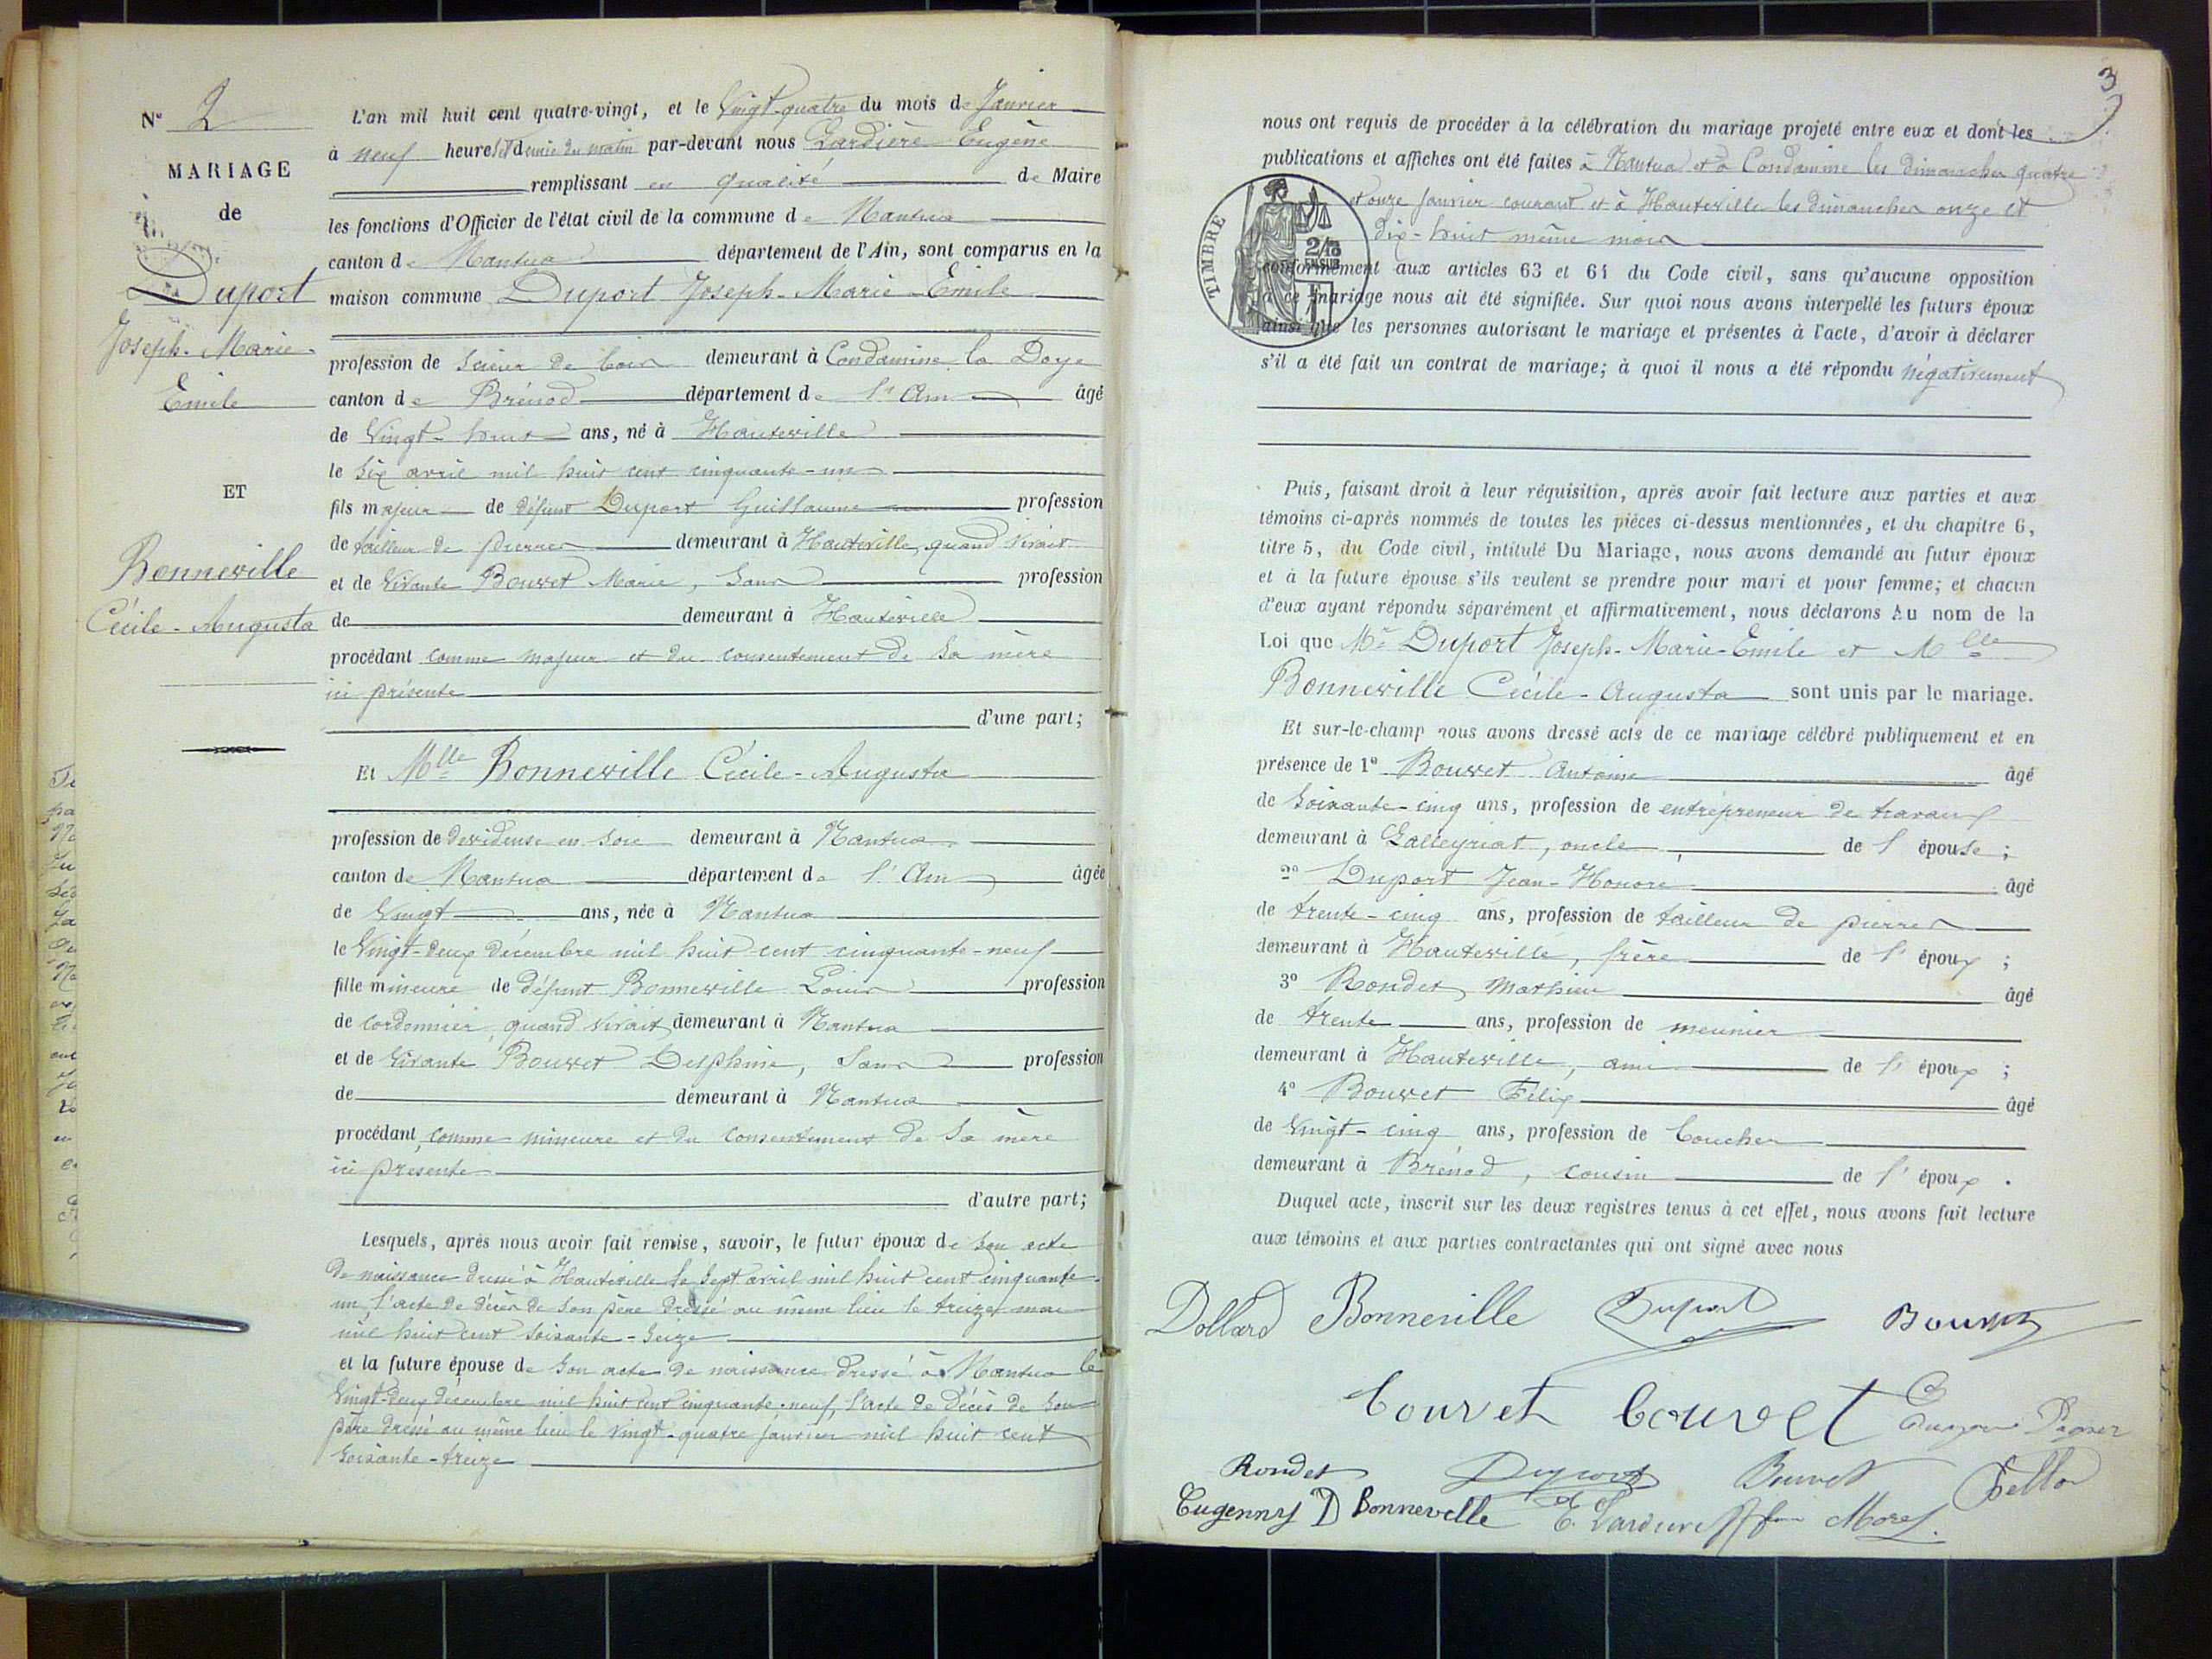 N° 2
MARIAGE
de
Duport
Joseph-Marie-
Emile
ET
Bonneville
Cécile-Augusta
L'an mil huit cent quatre-vingt, et le Vingt-quatre du mois de Janvier
à neuf heures et demie du matin par-devant nous Lardière Eugène
remplissant en qualité de Maire
les fonctions d'Officier de l'état civil de la commune de Nantua
canton de Nantua département de l'Ain, sont comparus en la
maison commune Duport Joseph-Marie-Emile
profession de scieur de bois demeurant à Condamine la Doye
canton de Brénod département de l'Ain âgé
de Vingt-huit ans, né à Hauteville
le Six avril mil huit cent cinquante-un
fils majeur de défunt Duport Guillaume profession
de tailleur de pierres demeurant à Hauteville, quand vivait
et de vivante Bouvet Marie, Sans profession
de demeurant à Hauteville
procédant comme majeur et du consentement de sa mère
ici présente
d'une part;
Et Mlle Bonneville Cécile-Augusta
profession de devideuse en soie demeurant à Nantua
canton de Nantua département de l'Ain âgée
de Vingt ans, née à Nantua
le Vingt-deux décembre mil huit cent cinquante-neuf
fille mineure de défunt Bonneville Louis profession
de cordonnier, quand vivait, demeurant à Nantua
et de vivante Bouvet Delphine, Sans profession
de demeurant à Nantua
procédant comme mineure et du consentement de sa mère
ici présente
d'autre part;
Lesquels, après nous avoir fait remise, savoir, le futur époux de son acte
de naissance dressé à Hauteville le sept avril mil huit cent cinquante-
un, l'acte de décès de son père dressé au même lieu le treize mai
mil huit cent soixante-seize
et la future épouse de son acte de naissance dressé à Nantua le
Vingt-deux décembre mil huit cent cinquante-neuf, l'acte de décès de son
père dressé au même lieu le vingt-quatre janvier mil huit cent
soixante-treize
3
nous ont requis de procéder à la célébration du mariage projeté entre eux et dont les
publications et affiches ont été faites à Nantua et à Condamine les dimanches quatre
et onze janvier courant et à Hauteville les dimanches onze et
dix-huit même mois
TIMBRE
2/10
EN SUS
conformément aux articles 63 et 64 du Code civil, sans qu'aucune opposition
à ce mariage nous ait été signifiée. Sur quoi nous avons interpellé les futurs époux
ainsi que les personnes autorisant le mariage et présentes à l'acte, d'avoir à déclarer
s'il a été fait un contrat de mariage; à quoi il nous a été répondu négativement
Puis, faisant droit à leur réquisition, après avoir fait lecture aux parties et aux
témoins ci-après nommés de toutes les pièces ci-dessus mentionnées, et du chapitre 6,
titre 5, du Code civil, intitulé Du Mariage, nous avons demandé au futur époux
et à la future épouse s'ils veulent se prendre pour mari et pour femme; et chacun
d'eux ayant répondu séparément et affirmativement, nous déclarons Au nom de la
Loi que Mr Duport Joseph-Marie-Emile et Mlle
Bonneville Cécile-Augusta sont unis par le mariage.
Et sur-le-champ nous avons dressé acte de ce mariage célébré publiquement et en
présence de 1° Bouvet Antoine âgé
de soixante-cinq ans, profession de entrepreneur de travaux
demeurant à Lalleyriat, oncle de l'épouse;
2° Duport Jean-Honoré âgé
de trente-cinq ans, profession de tailleur de pierres
demeurant à Hauteville, frère de l'époux;
3° Rondet Mathieu âgé
de trente ans, profession de meunier
demeurant à Hauteville, ami de l'époux;
4° Bouvet Félix âgé
de Vingt-cinq ans, profession de boucher
demeurant à Brénod, cousin de l'époux.
Duquel acte, inscrit sur les deux registres tenus à cet effet, nous avons fait lecture
aux témoins et aux parties contractantes qui ont signé avec nous
Dollard Bonneville Duport Bouvet
Bouvet Bouvet
Rondet Duport Bouvet
Eugenny D Bonneville E. Lardière Morel